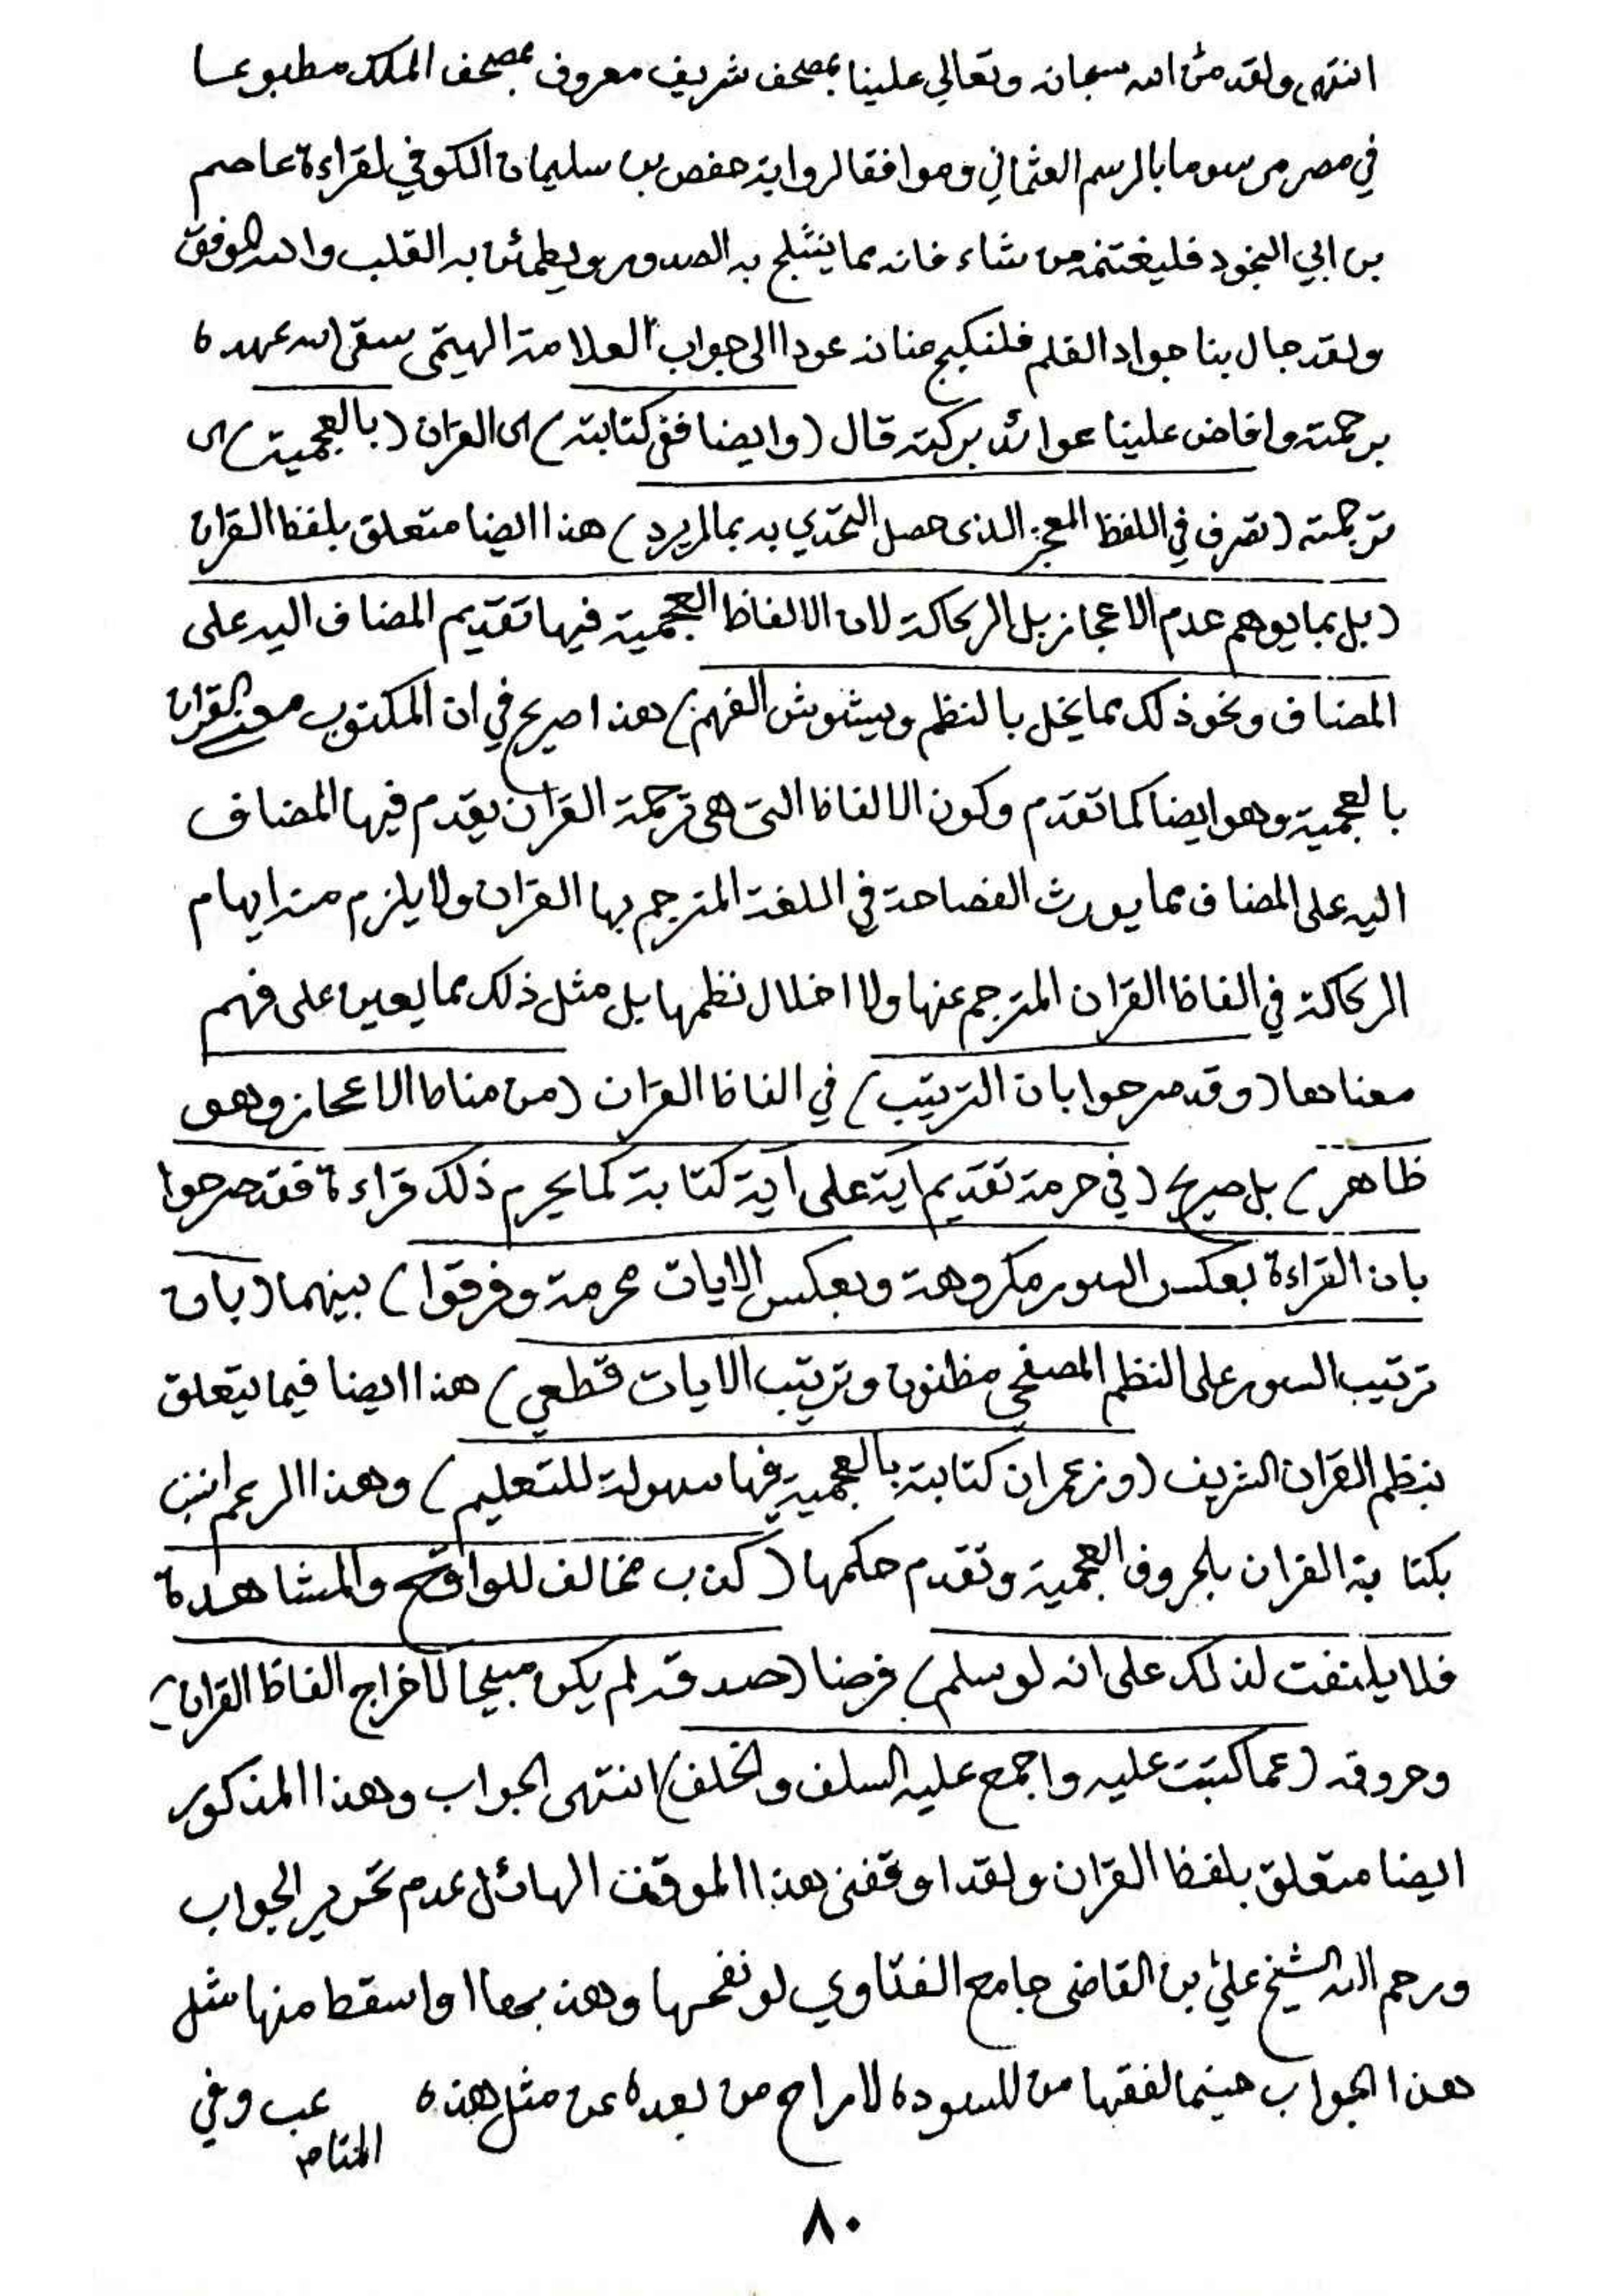 انتهى ولقد منّ الله سبحانه وتعالي علينا بمصحف شريف معروف بمصحف الملك مطبوعا
في مصر مرسوما بالرسم العثماني وموافقا لرواية حفص بن سليمان الكوفي لقراءة عاصم
بن ابي النجود فليغتنمه من شاء فانه مما ينثلج به الصدور ويطمأن به القلب والله الموفق
ولقد جال بنا جواد القلم فلنكبح عنانه عودا الى جواب العلامة الهيتمى سقى الله عهده
برحمته وافاض علينا عوائد بركته قال (وايضا ففي كتابته) اى القرآن (بالعجمية) اى
ترجمته (تصرف في اللفظ المعجز الذى حصل التحدّي به بما لم يرد) هذا ايضا متعلق بلفظ القرآن
(بل بما يوهم عدم الاعجاز بل الركاكة لان الالفاظ العجمية فيها تقديم المضاف اليه على
المضاف ونحو ذلك مما يخل بالنظم ويشوش الفهم) هذا صريح في ان المكتوب معنى القرآن
بالعجمية وهو ايضا كما تقدم وكون الالفاظ التى هى ترجمة القرآن يقدم فيها المضاف
اليه على المضاف مما يورث الفصاحة في اللغة المترجم بها القرآن ولا يلزم منه ايهام
الركاكة في الفاظ القرآن المترجم عنها ولا اخلال نظمها بل مثل ذلك مما يعين على فهم
معناها (وقد صرحوا بان الترتيب) في الفاظ القرآن (من مناط الاعجاز وهو
ظاهر) بل صريح (في حرمة تقديم آية على آية كتابة كما يحرم ذلك قراءة فقد صرحوا
بان القراءة بعكس السور مكروهة وبعكس الايات محرمة وفرقوا) بينهما (بان
ترتيب السور على النظم المصفحي مظنون وترتيب الايات قطعي) هذا ايضا فيما يتعلق
بنظم القرآن الشريف (وزعم ان كتابته بالعجمية فيها سهولة للتعليم) وهذا الزعم انسب
بكتابة القرآن بالحروف العجمية وتقدم حكمها (كذب مخالف للواقع والمشاهدة
فلا يلتفت لذلك على انه لو سلم) فرضا (صدقه لم يكن مبيحا لاخراج الفاظ القرآن)
وحروفه (عما كتبت عليه واجمع عليه السلف والخلف) انتهى الجواب وهذا المذكور
ايضا متعلق بلفظ القرآن ولقد اوقفنى هذا الموقف الهائل عدم تحرير الجواب
ورحم الله الشيخ علىّ بن القاضى جامع الفتاوي لو نقحها وهذبها او اسقط منها مثل
هذا الجواب حينما لفقها من المسودة لاراح من بعده عن مثل هذه
عب وفي
٨٠